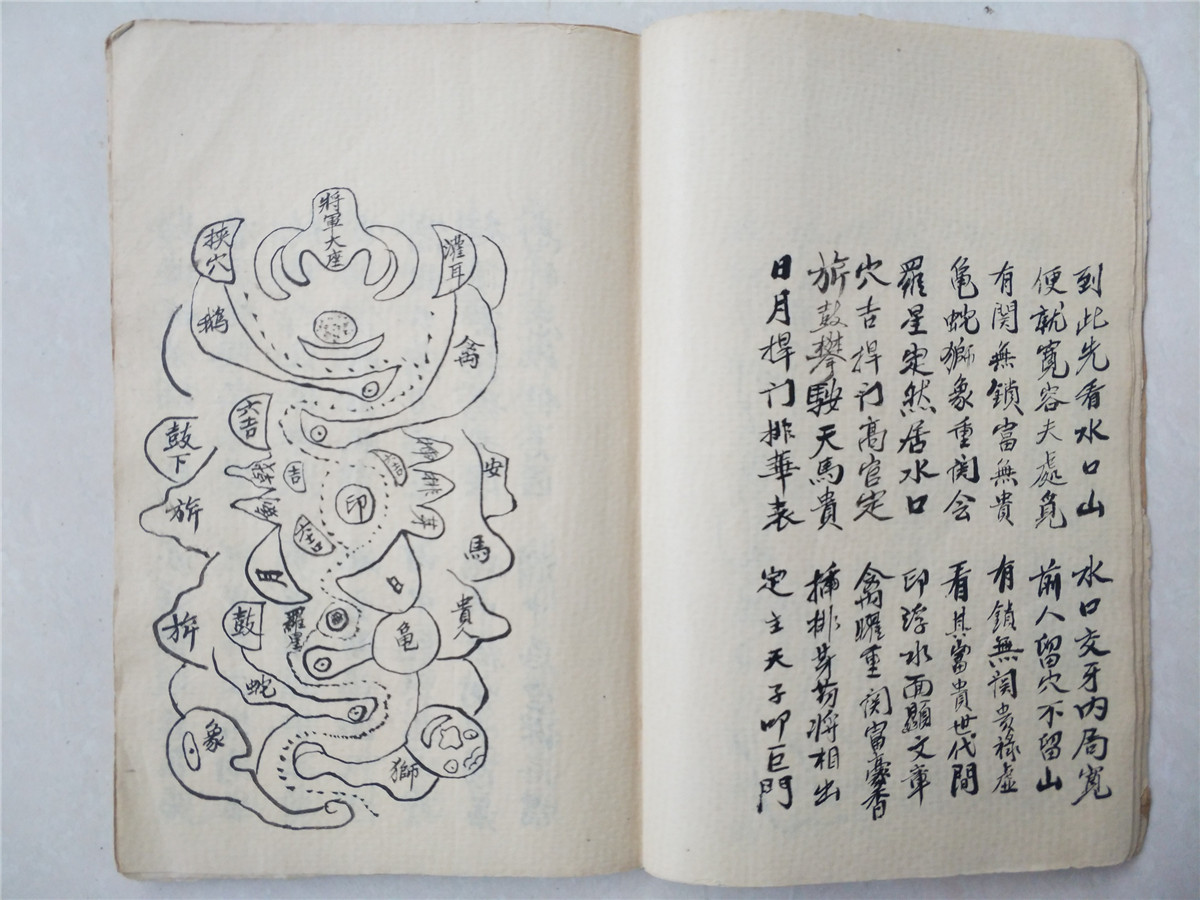 到此先看水口山 水口交牙内局寬
便就寬容夫處覓 前人留穴不留山
有関無鎖富無貴 有鎖無関貴祿虛
龟蛇獅象重関会 看其富貴世代間
羅星定然居水口 印浮水面顯文章
穴吉捍门高官定 禽曜重関富豪香
旂鼓攀鞍天馬貴 插排芽笏將相出
日月捍门排華表 定主天子叩巨門
將軍大座
挾穴
濯耳
鵝
禽
六吉
鼓下
旂
吉
印
排
芽
安
馬
月
日
貴人
旂
鼓
羅星
龟
蛇
象
獅